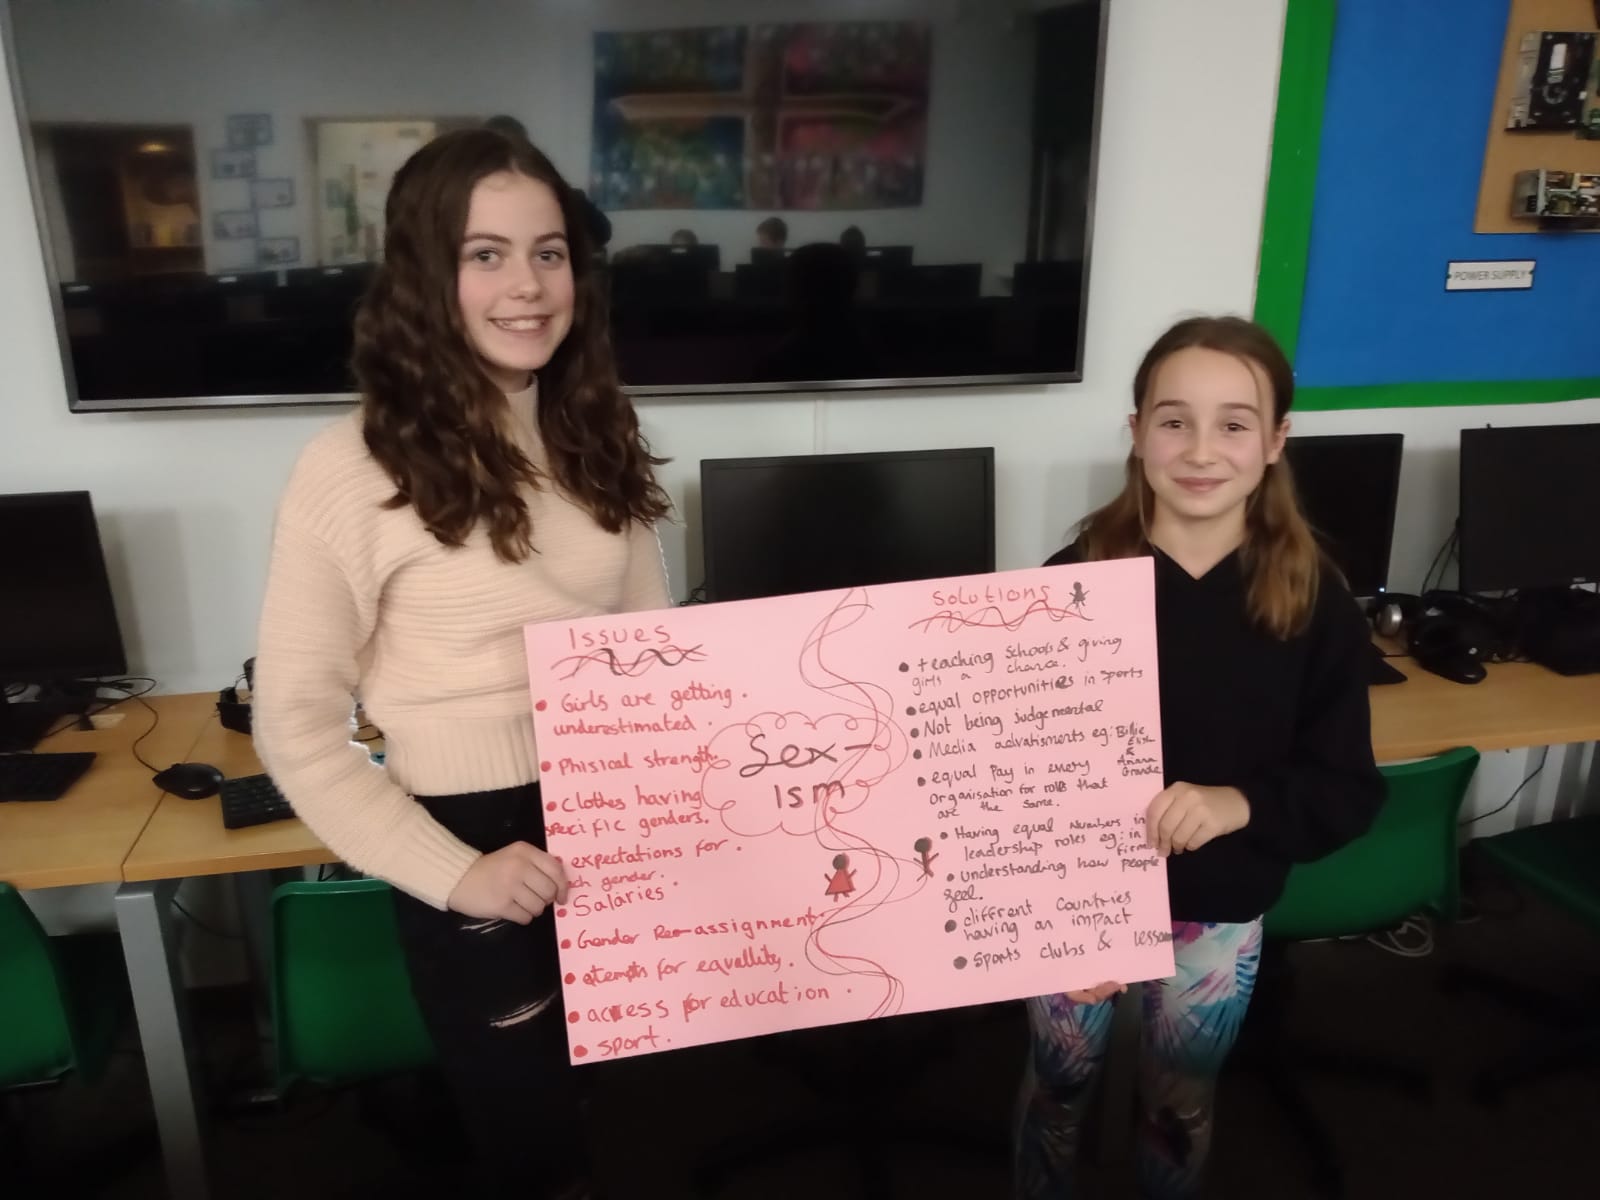 Issues
• Girls are getting.
underestimated.
• Phisical strength.
• Clothes having
specific genders.
expectations for.
ch gender.
• Salaries.
• Gender Re-assignment.
• atempts for equallity.
• access for education.
• sport.
Sex-
ism
Solutions
• teaching schools & giving
girls a chance.
• equal opportunities in sports
• Not being judgemental
• Media advatisments eg: Billie
Eilish
&
Ariana
Grande
• equal pay in every
organisation for rolls that
are the same.
• Having equal numbers in
leadership roles eg: in
firm
• understanding how people
feel.
• diffrent countries
having an impact
• Sports clubs & lesson
POWER SUPPLY